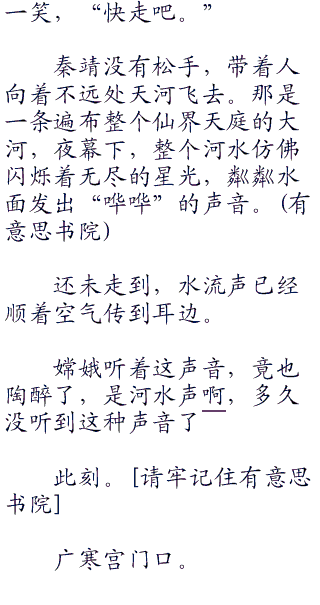 一笑，“快走吧。”
秦靖没有松手，带着人
向着不远处天河飞去。那是
一条遍布整个仙界天庭的大
河，夜幕下，整个河水仿佛
闪烁着无尽的星光，粼粼水
面发出“哗哗”的声音。(有
意思书院)
还未走到，水流声已经
顺着空气传到耳边。
嫦娥听着这声音，竟也
陶醉了，是河水声啊，多久
没听到这种声音了
此刻。[请牢记住有意思
书院]
广寒宫门口。